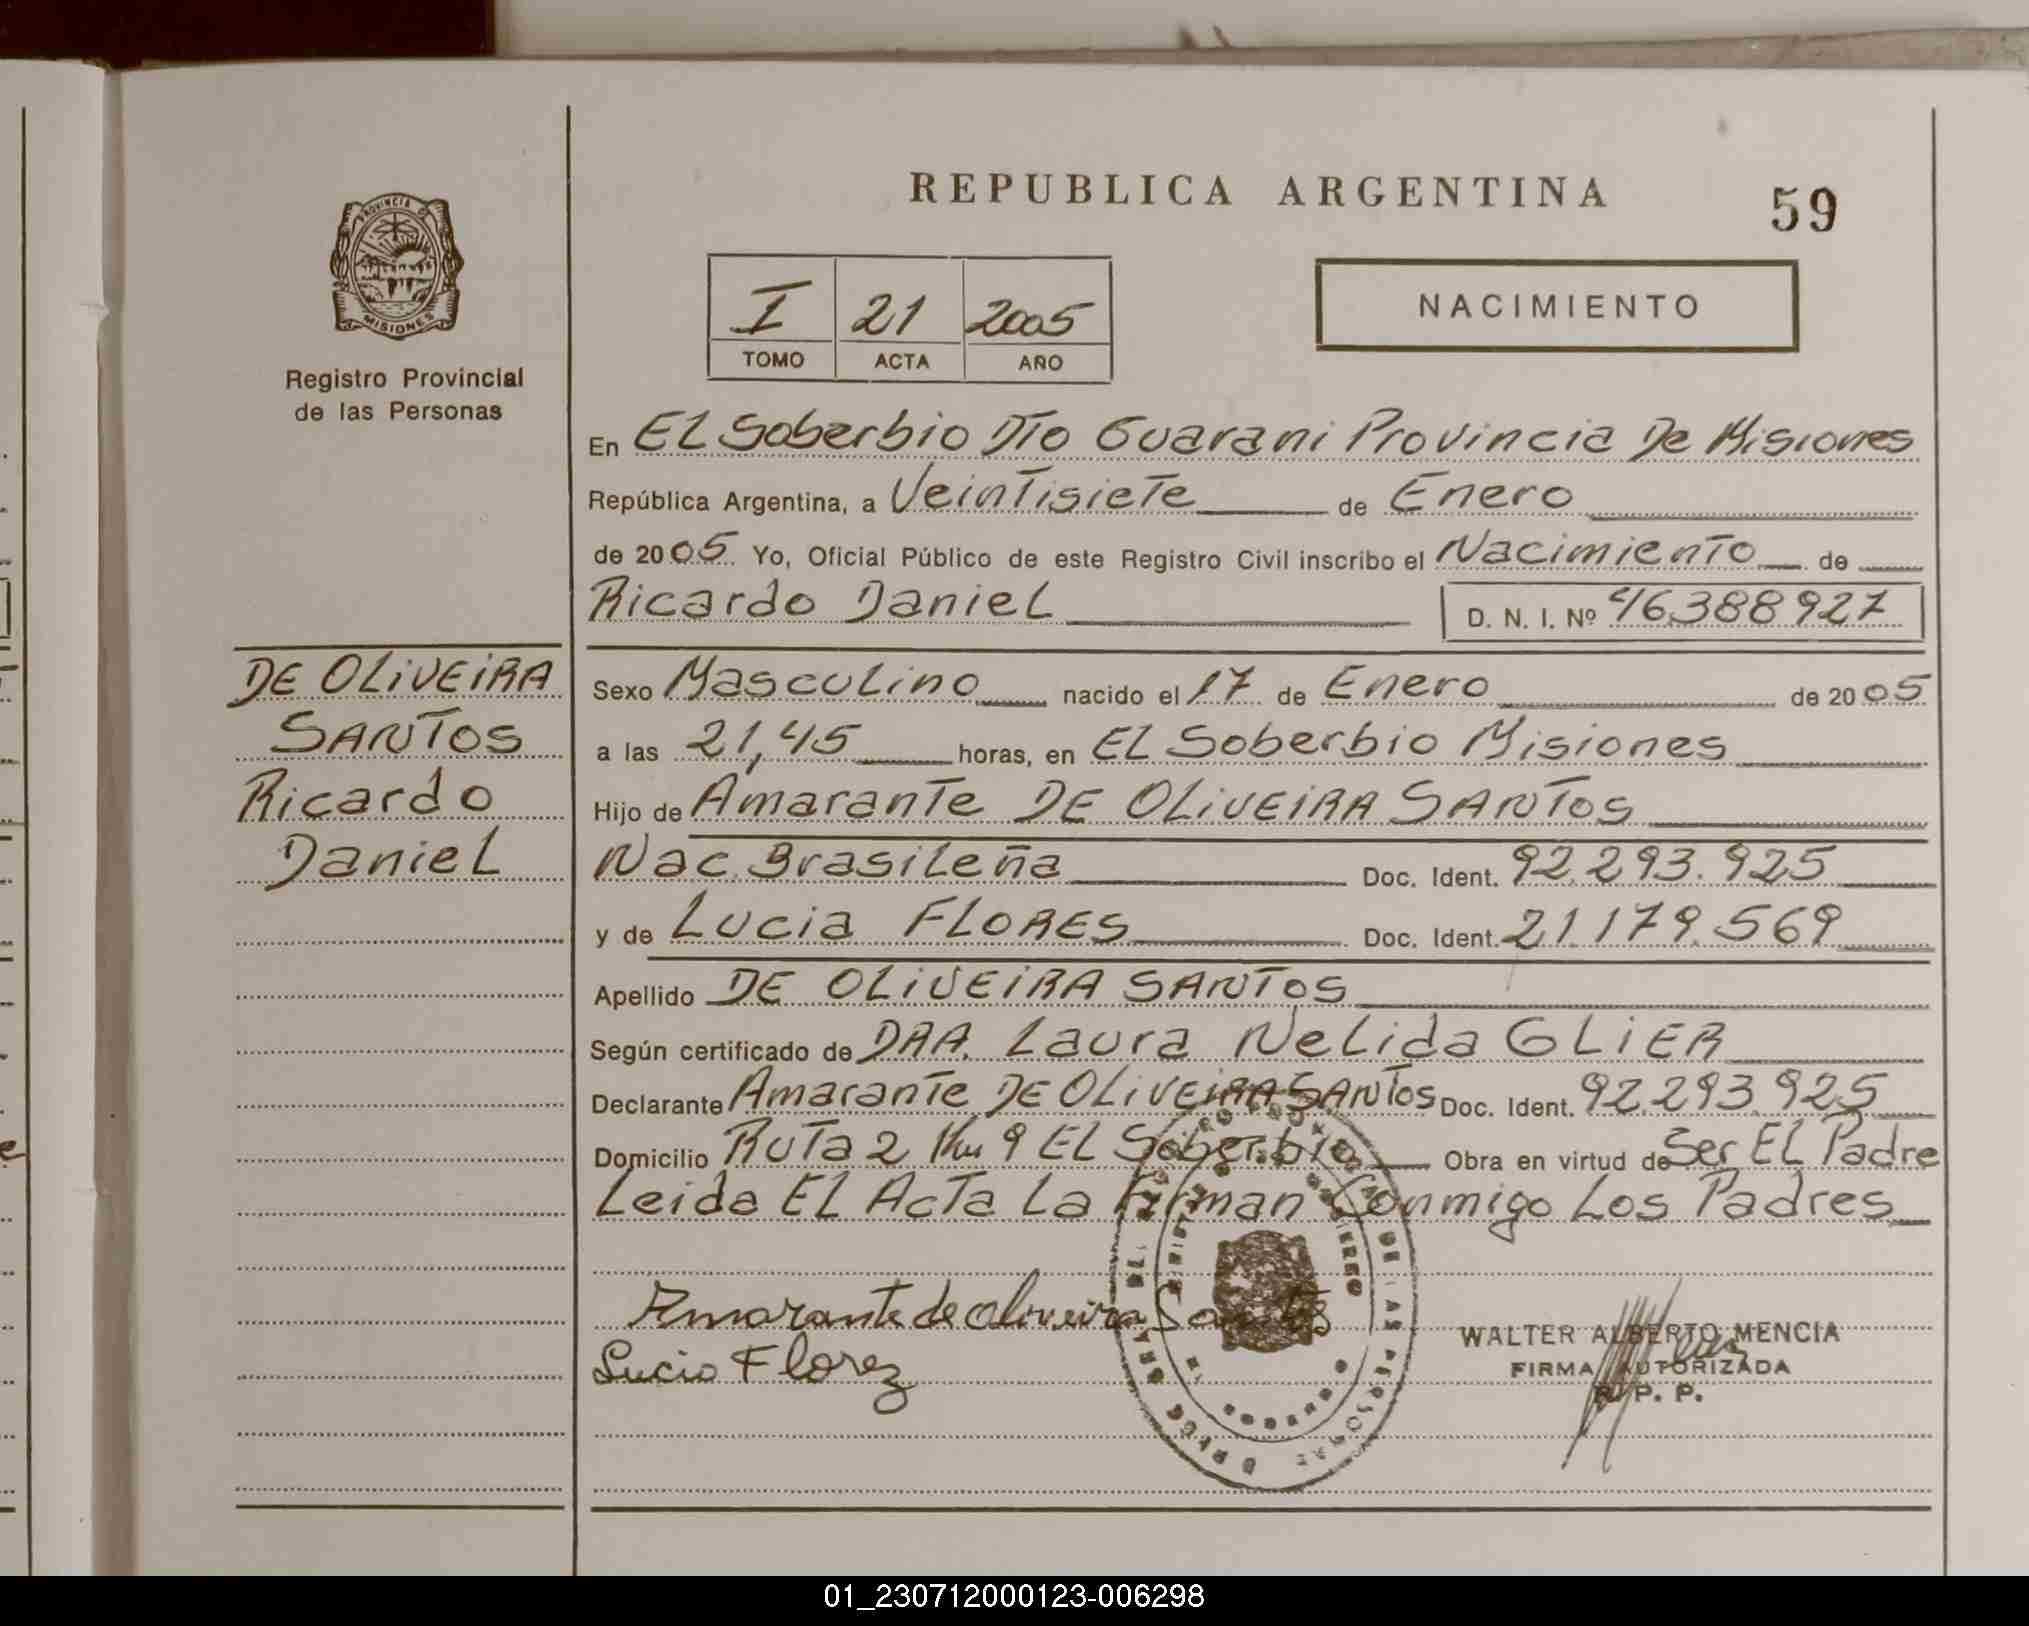 REPUBLICA ARGENTINA
59
PROVINCIA DE
MISIONES
Registro Provincial
de las Personas
I 21 2005
TOMO ACTA AÑO
NACIMIENTO
En EL Soberbio DTo Guarani Provincia De Misiones
República Argentina, a VeinTisieTe de Enero
de 2005 Yo, Oficial Público de este Registro Civil inscribo el NacimienTo de
Ricardo DanieL D. N. I. Nº 46.388927
DE OLiVEiRA
SANTOS
Ricardo
DanieL
Sexo MascuLino nacido el 17 de Enero de 2005
a las 21,45 horas, en EL Soberbio Misiones
Hijo de AmaranTe DE OLiVEiRA SANTOS
Nac. BrasiLeña Doc. Ident. 92.293.925
y de Lucia FLORES Doc. Ident. 21.179.569
Apellido DE OLiVEiRA SANTOS
Según certificado de DRA. Laura NeLida GLiER
Declarante AmaranTe DE OLiVEiRA SANTOS Doc. Ident. 92.293.925
Domicilio RuTa 2 Km 9 EL Soberbio Obra en virtud de Ser EL Padre
Leida EL AcTa La Firman Conmigo Los Padres
Amarante de oliveira Santos
Lucia Florez
WALTER ALBERTO MENCIA
FIRMA AUTORIZADA
R. P. P.
01_230712000123-006298